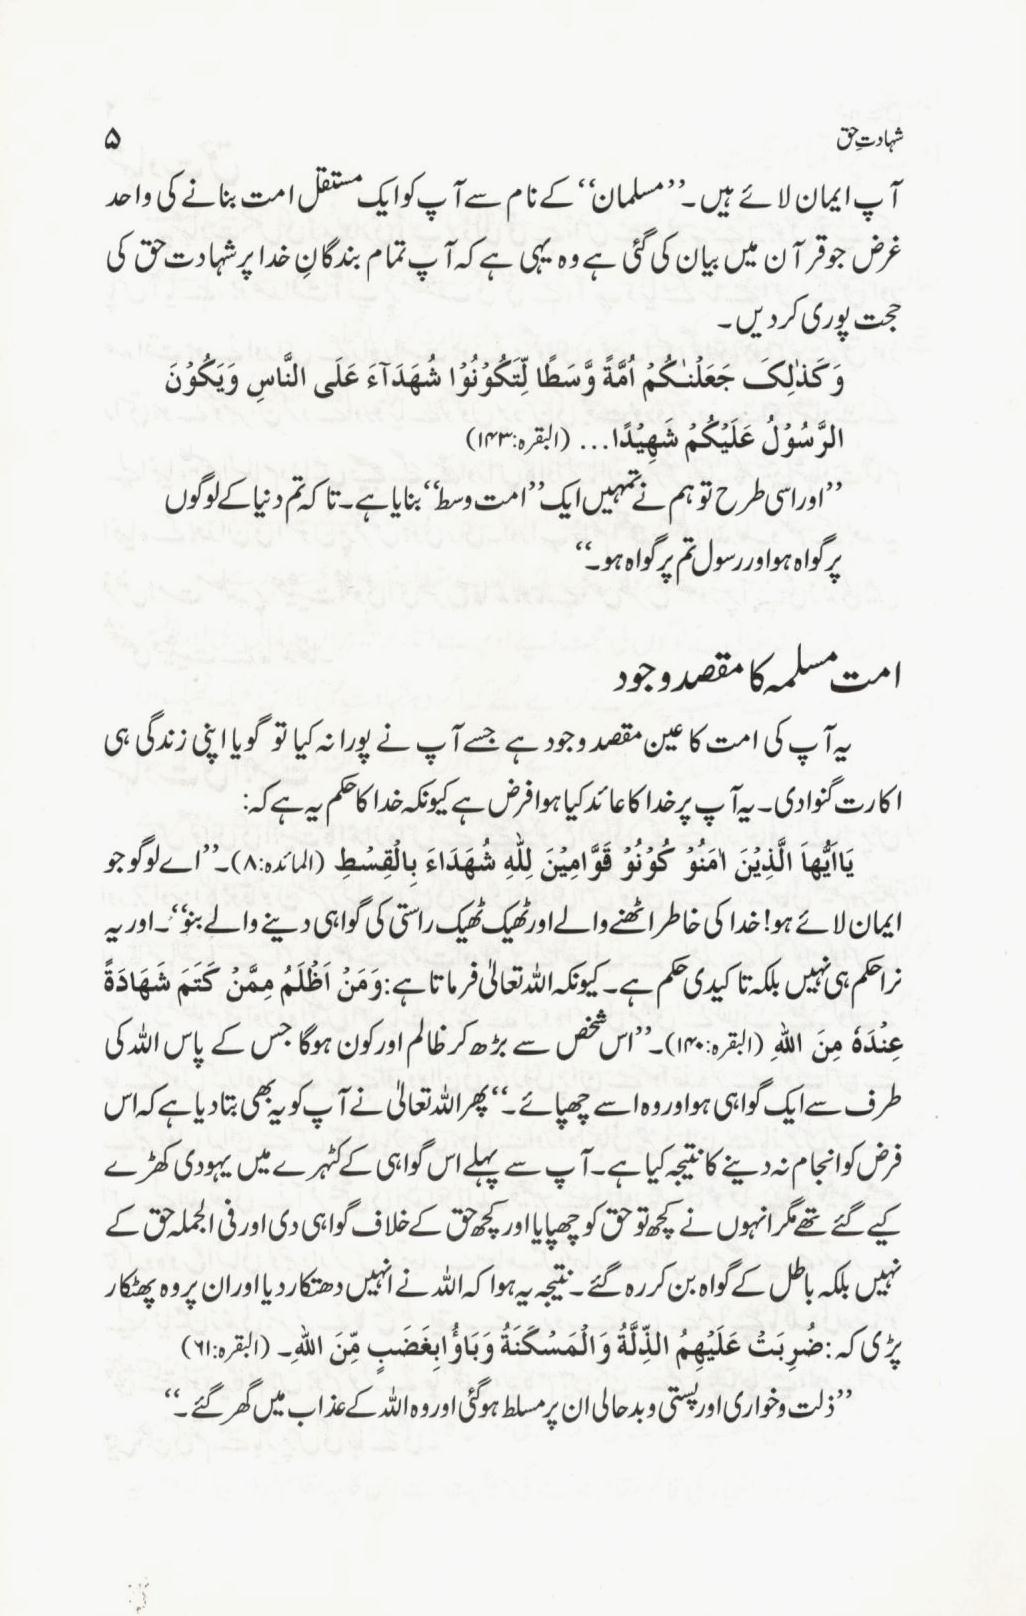 شہادتِ حق
۵
آپ ایمان لائے ہیں۔ ’’مسلمان‘‘ کے نام سے آپ کو ایک مستقل امت بنانے کی واحد
غرض جو قرآن میں بیان کی گئی ہے وہ یہی ہے کہ آپ تمام بندگانِ خدا پر شہادت حق کی
حجت پوری کر دیں۔
وَكَذٰلِكَ جَعَلْنٰكُمْ اُمَّةً وَّسَطًا لِّتَكُوْنُوْا شُهَدَآءَ عَلَى النَّاسِ وَيَكُوْنَ
الرَّسُوْلُ عَلَيْكُمْ شَهِيْدًا... (البقرہ:۱۴۳)
’’اور اسی طرح تو ہم نے تمہیں ایک ’’امت وسط‘‘ بنایا ہے۔ تاکہ تم دنیا کے لوگوں
پر گواہ ہو اور رسول تم پر گواہ ہو۔‘‘
امت مسلمہ کا مقصد وجود
یہ آپ کی امت کا عین مقصد وجود ہے جسے آپ نے پورا نہ کیا تو گویا اپنی زندگی ہی
اکارت گنوا دی۔ یہ آپ پر خدا کا عائد کیا ہوا فرض ہے کیونکہ خدا کا حکم یہ ہے کہ:
يَااَيُّهَا الَّذِيْنَ اٰمَنُوْ كُوْنُوْ قَوَّامِيْنَ لِلّٰهِ شُهَدَاءَ بِالْقِسْطِ (المائدہ:۸)۔ ’’اے لوگو جو
ایمان لائے ہو! خدا کی خاطر اٹھنے والے اور ٹھیک ٹھیک راستی کی گواہی دینے والے بنو‘‘۔ اور یہ
نرا حکم ہی نہیں بلکہ تاکیدی حکم ہے۔ کیونکہ اللہ تعالیٰ فرماتا ہے: وَمَنْ اَظْلَمُ مِمَّنْ كَتَمَ شَهَادَةً
عِنْدَهٗ مِنَ اللّٰهِ (البقرہ:۱۴۰)۔ ’’اس شخص سے بڑھ کر ظالم اور کون ہوگا جس کے پاس اللہ کی
طرف سے ایک گواہی ہو اور وہ اسے چھپائے۔‘‘ پھر اللہ تعالیٰ نے آپ کو یہ بھی بتا دیا ہے کہ اس
فرض کو انجام نہ دینے کا نتیجہ کیا ہے۔ آپ سے پہلے اس گواہی کے کٹہرے میں یہودی کھڑے
کیے گئے تھے مگر انہوں نے کچھ تو حق کو چھپایا اور کچھ حق کے خلاف گواہی دی اور فی الجملہ حق کے
نہیں بلکہ باطل کے گواہ بن کر رہ گئے۔ نتیجہ یہ ہوا کہ اللہ نے انہیں دھتکار دیا اور ان پر وہ پھٹکار
پڑی کہ: ضُرِبَتْ عَلَيْهِمُ الذِّلَّةُ وَالْمَسْكَنَةُ وَبَاؤُا بِغَضَبٍ مِّنَ اللّٰهِ۔ (البقرہ:۶۱)
’’ذلت و خواری اور پستی و بدحالی ان پر مسلط ہو گئی اور وہ اللہ کے عذاب میں گھر گئے۔‘‘